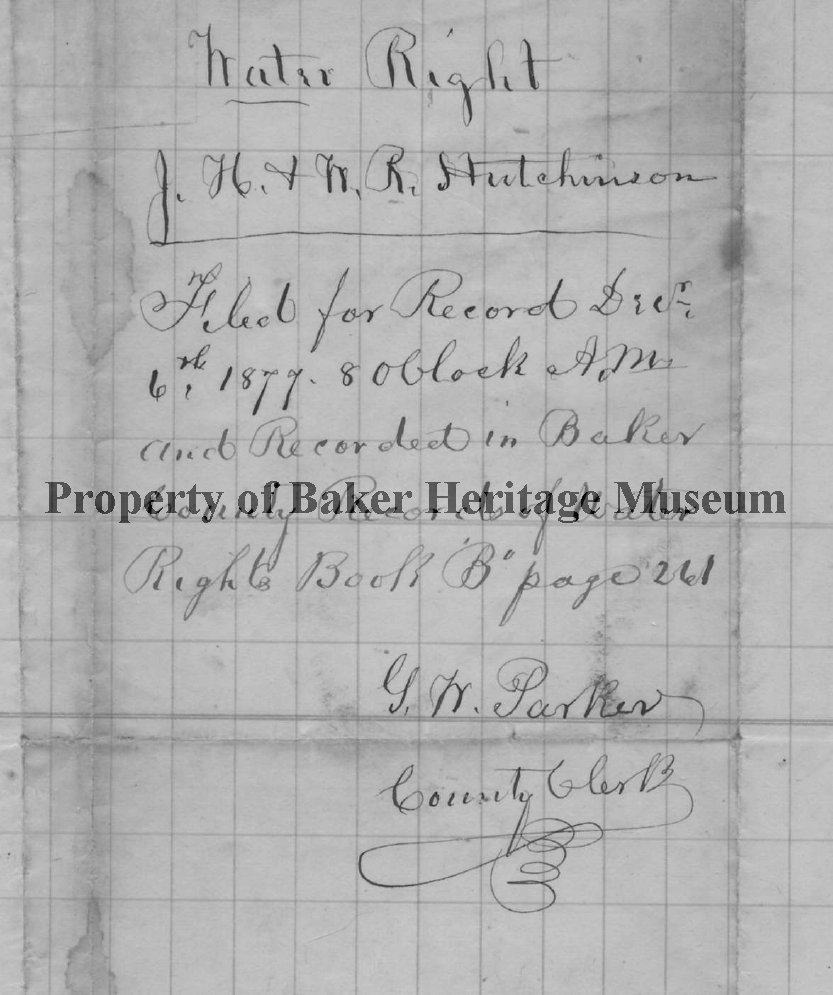 Water Right
J. H. & W. R. Hutchinson
Filed for Record Decr.
6th, 1877. 8 Oclock A.M.
and Recorded in Baker
County Records of Water
Property of Baker Heritage Museum
Rights Book "B" page 261
G. W. Parker
County Clerk